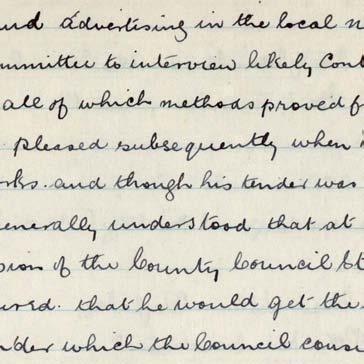 and advertising in the local
ommittee to interview likely Con
all of which methods proved f
pleased subsequently when
orks. and though his tender was
enerally understood that at
sion of the County Council St
ured. that he would get the
nder which the Council cons